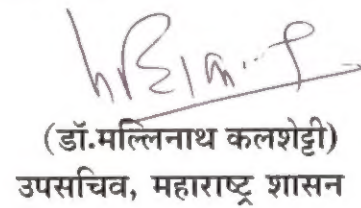 (डॉ.मल्लिनाथ कलशेट्टी)
उपसचिव, महाराष्ट्र शासन